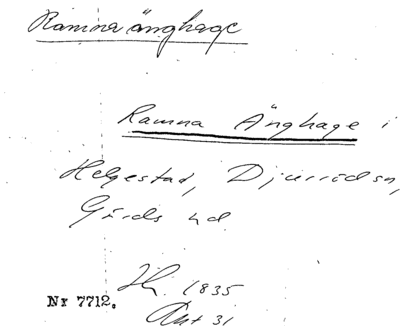 Ramna änghage
Ramna Änghage i
Helgestad, Djurröds sn,
Gärds hd
Hr. 1835
Akt 31
Nr 7712.